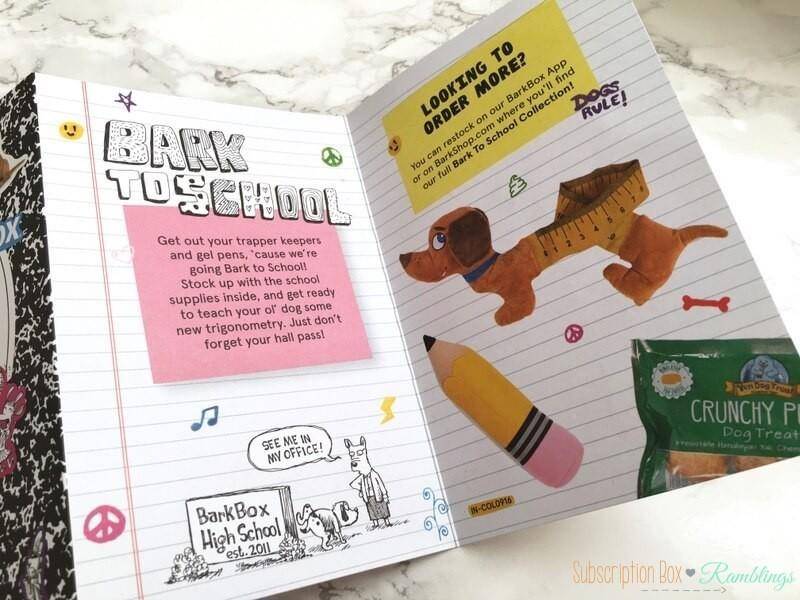 BARK
TO SCHOOL
Get out your trapper keepers
and gel pens, 'cause we're
going Bark to School!
Stock up with the school
supplies inside, and get ready
to teach your ol' dog some
new trigonometry. Just don't
forget your hall pass!
SEE ME IN
MY OFFICE!
BarkBox
High School
est. 2011
LOOKING TO
ORDER MORE?
You can restock on our BarkBox App
or on BarkShop.com where you'll find
our full Bark To School Collection!
DOGS
RULE!
0 1 2 3 4 5 6 7 8
IN-COL0916
CRUNCHY
Dog Treat
Subscription Box Ramblings